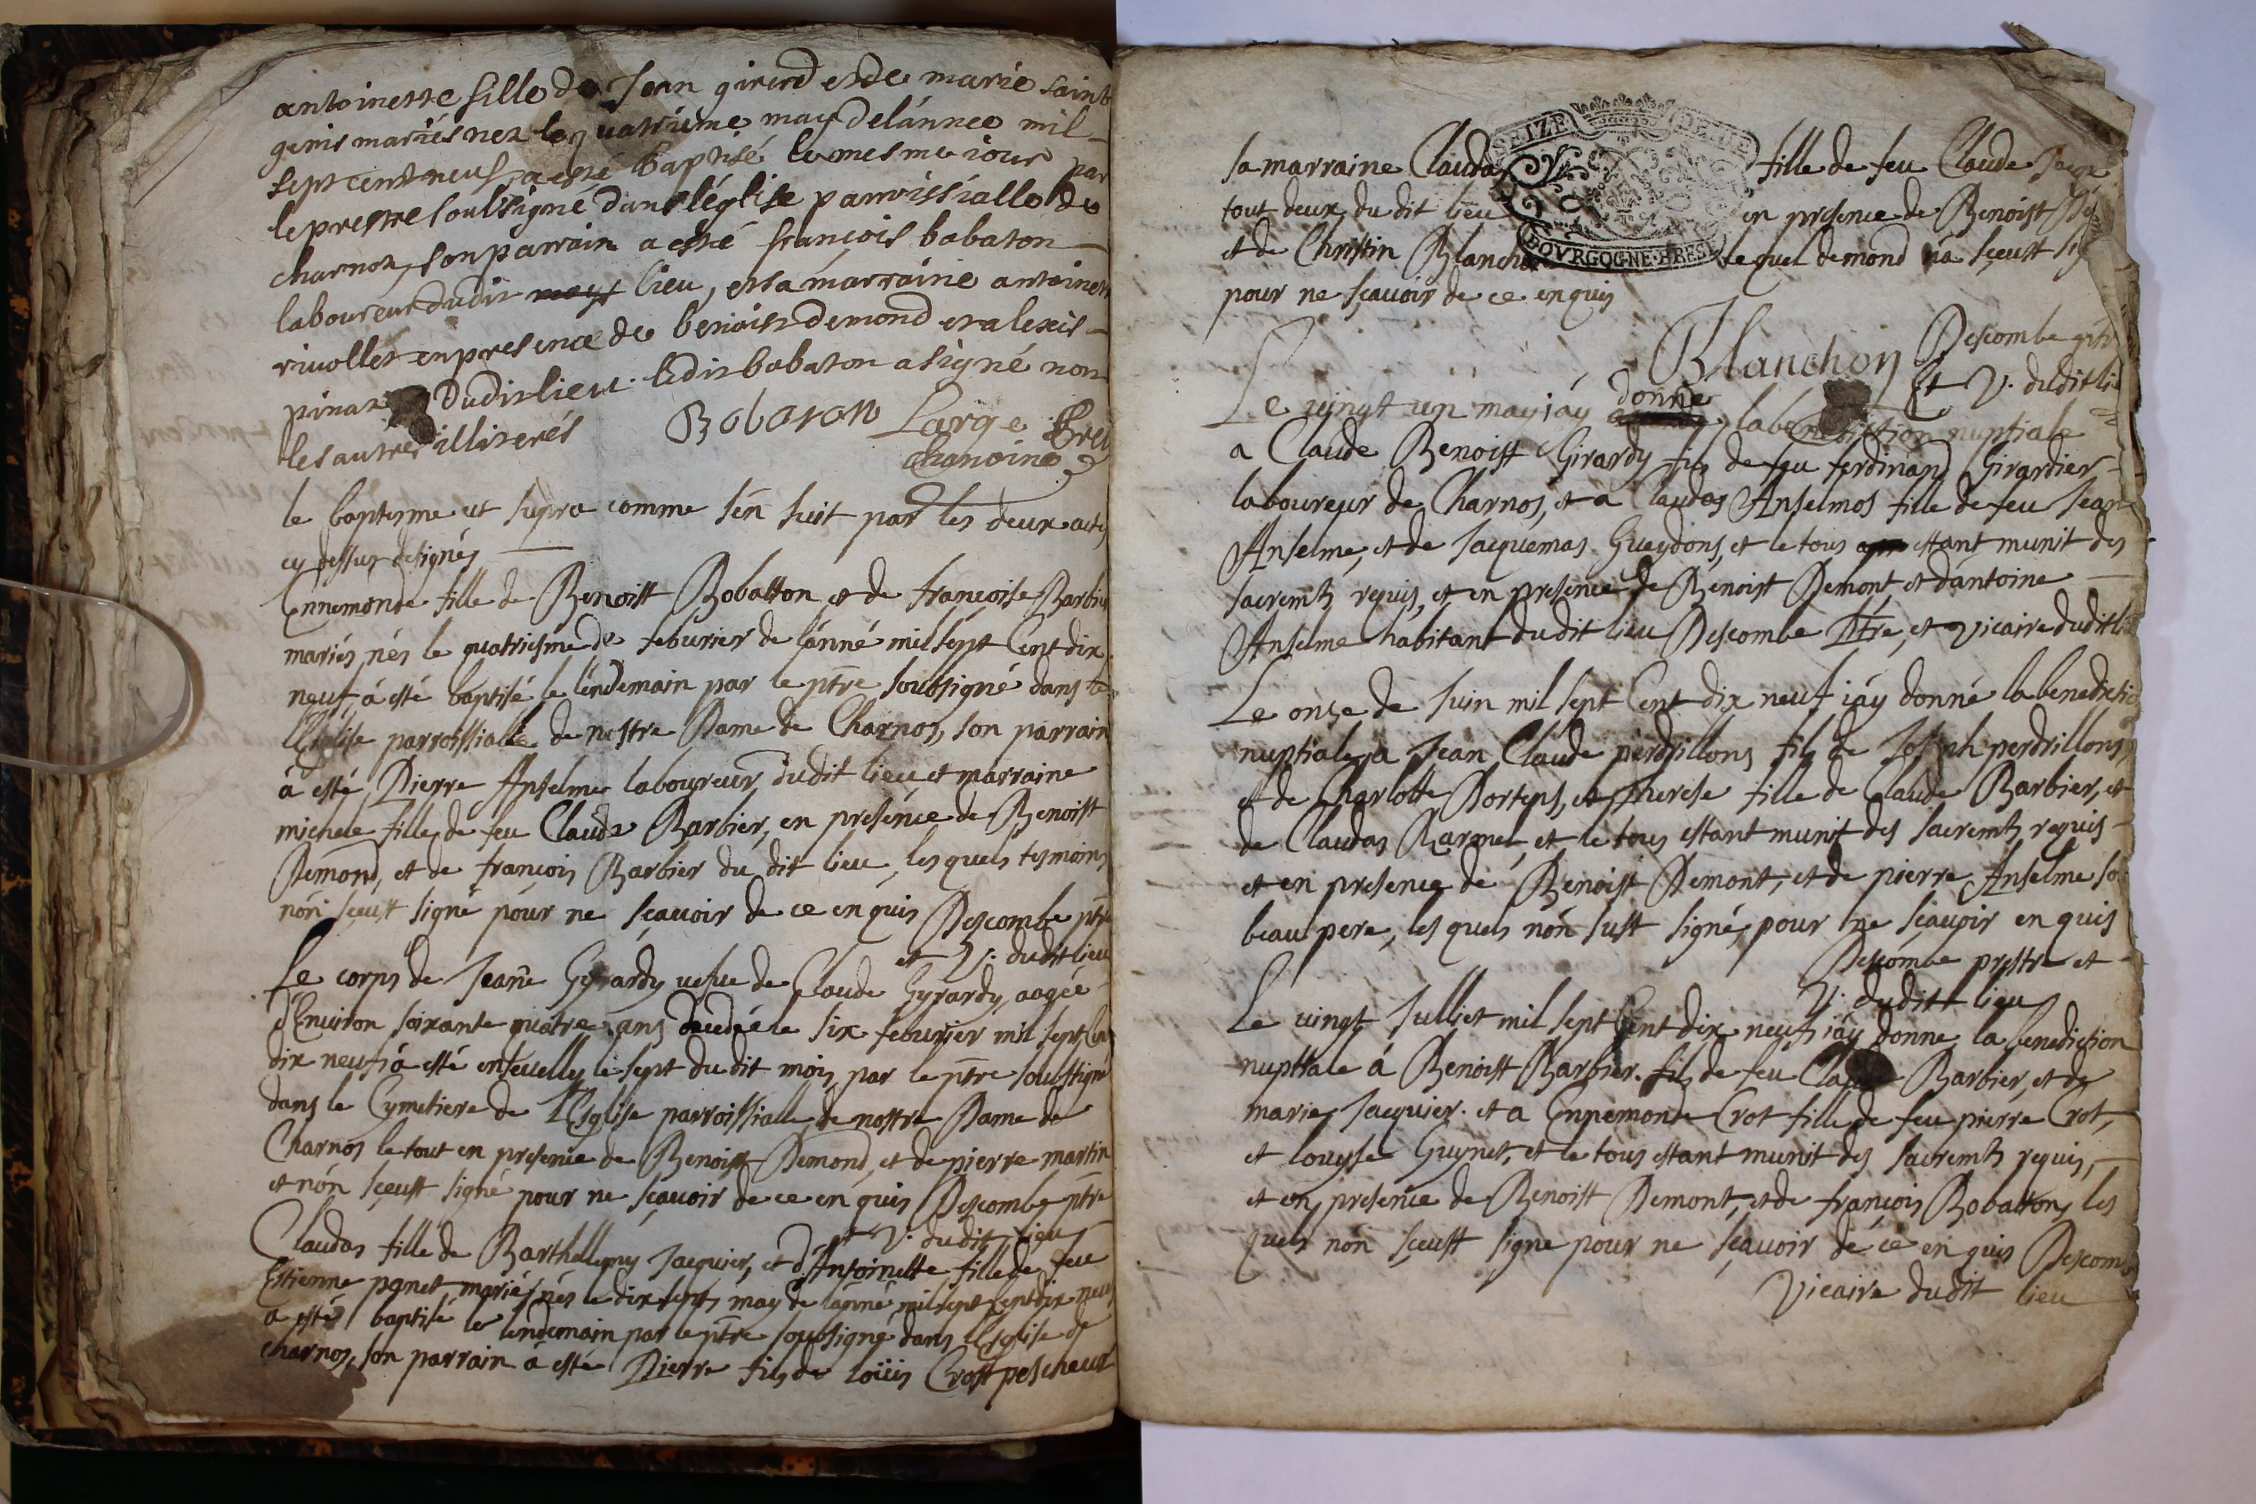 antoinette fille de Jean girerd et de marie saint
genis mariés nez le quatrieme may de lánnée mil
sept cent neuf, a esté baptisé le mesme iour par
le prestre soubsigné dans léglise parroissialle de
charnoz, son parrain a esté françois bobaton
laboureur dudit lieu, et sa marraine antoinet
rivollet en presence de benoist demond et alexis
pinaz dudit lieu. ledit bobaton a signé non
les autres illiterés
Bobaton Large Pre
chanoine
le baptesme ut supra comme sén suit par les deux actes
cy dessus designés
Ennemonde fille de Benoist Bobatton et de françoise Barbier
mariés, nés le quatriesme de febvrier de lánné mil sept Cent dix
neuf, á esté baptisé le lendemain par le ptre soubsigné dans
lEglise parroissialle de nostre Dame de Charnos, son parrain
á esté Pierre Anselme laboureur dudit lieu et marraine
michele fille de feu Claude Barbier, en presence de Benoist
Demond, et de françois Barbier du dit lieu, les quels tesmoins
nón sçeust signé pour ne sçavoir de ce enquis Descombe ptre
et V. dudit lieu
Le corps de Jeane Gyrardy vefve de Claude Gyrardy, aagée
dEnviron soixante quatre ans decedée le six febvrier mil sept Cent
dix neuf á esté ensevelly le sept dudit mois par le ptre soubsigné
dans le Cymetiere de lEglise parroissialle de nostre Dame de
Charnos le tout en presence de Benoist Demond, et de pierre martin
et nón sçeust signé pour ne sçavoir de ce enquis Descombe ptre
et V. dudit lieu
Claudas fille de Barthellemy Jacquier, et dAntoinette fille de feu
Estienne ponet mariés, nés le dix sept may de lánné mil sept Cent dix neuf
a esté baptisé le lendemain par le ptre soubsigné dans lEglise de
charnos, son parrain á esté Pierre fils de loüis Crost pescheur
sa marraine Claudas fille de feu Claude
tout deux du dit lieu en presence de Benoist
et de Christin Blanchon lequel demond ná sçeust
pour ne sçavoir de ce enquis
SEIZE DENIE
BOVRGOGNE BRES
Blanchon Descombe ptre
Et V. dudit lieu
Le vingt un may iáy donné la benediction nuptiale
a Claude Benoist Girardy fils de feu ferdinand Girardier
laboureur de Charnos, et a Claudas Anselmos fille de feu Jean
Anselme, et de Jacquemas Gueydons, et le tous estant munit des
sacremts requis, et en presence de Benoist Demont et dántoine
Anselme habitant dudit lieu Descombe Ptre, et vicaire dudit
Le onze de Juin mil sept Cent dix neuf iáy donné la benedictio
nuptiale a Jean Claude perdrillons fils de Joseph perdrillons
et de Charlotte Dortens, et therese fille de Claude Barbier, et
de Claudas Ramel et le tous estant munit des sacremts requis
et en presence de Benoist Demont, et de pierre Anselme so
beau pere, les quels nón sust signé pour ne sçavoir enquis
Descombe prestre et
V. dudit lieu
Le vingt Julliet mil sept Cent dix neuf iáy donne la benediction
nuptiale á Benoist Barbier fils de feu Claude Barbier, et de
marie Jacquier. et a Ennemonde Crot fille de feu pierre Crot,
et louyse Guynet, et le tous estant munit des sacremts requis,
et en presence de Benoist Demont, et de françois Bobatton, les
quels nón sçeust signe pour ne sçavoir de ce enquis Descomb
Vicaire dudit lieu